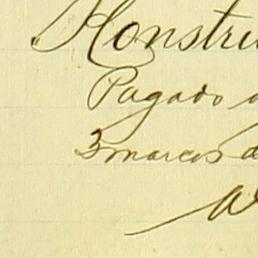 Konstru
Pagado a
3 marcos d